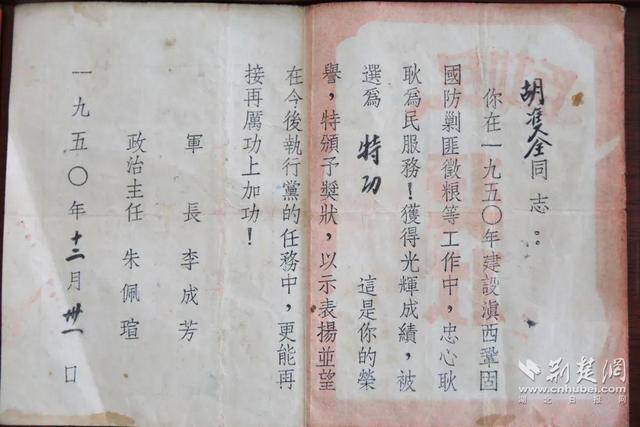 胡隻全同志：
你在一九五〇年建設滇西鞏固
國防剿匪徵粮等工作中，忠心耿
耿為民服務！獲得光輝成績，被
選為 特功 這是你的榮
譽，特頒予獎狀，以示表揚並望
在今後執行黨的任務中，更能再
接再厲功上加功！
軍長 李成芳
政治主任 朱佩瑄
一九五〇年十二月卅一日
荆楚網
www.cnhubei.com
湖北日报网